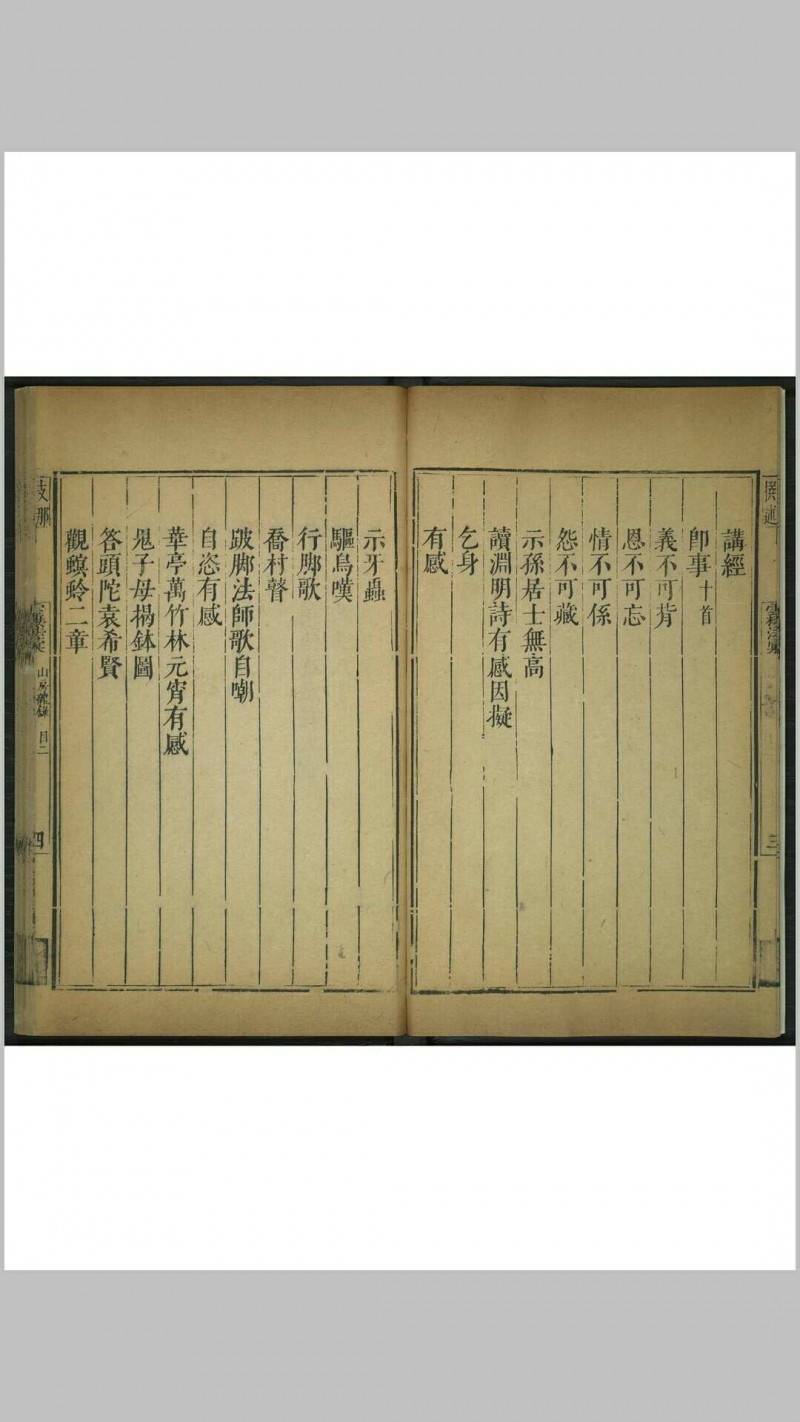 講經
卽事十首
義不可背
恩不可忘
情不可係
怨不可藏
示孫居士無高
讀淵明詩有感因擬
乞身
有感
三
示牙蟲
驅烏嘆
行脚歌
喬村瞽
跛脚法師歌自嘲
自恣有感
華亭萬竹林元宵有感
鬼子母揭鉢圖
答頭陀袁希賢
觀螟蛉二章
山房雜錄 目二
四